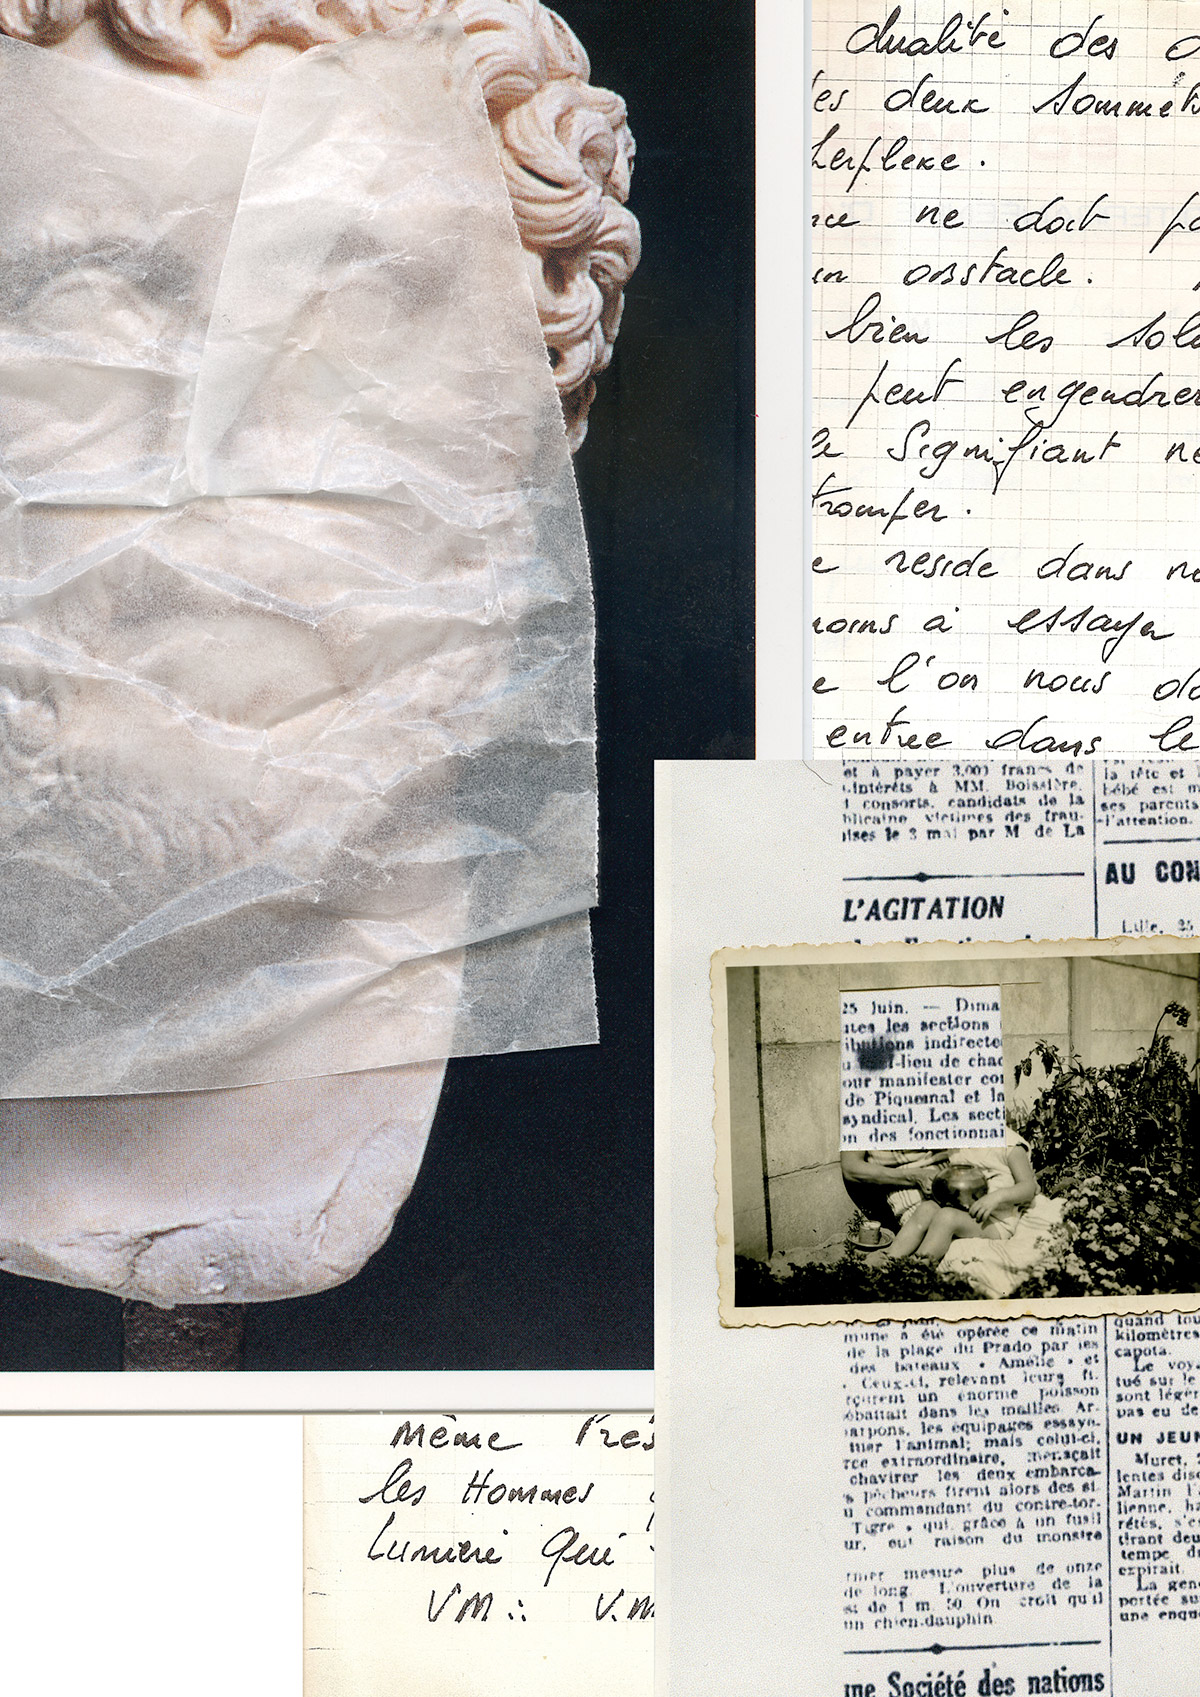 dualité des
des deux sommets
perplexe.
ne doit
un obstacle.
bien les
peut engendrer
le Signifiant ne
tromper.
reside dans
moins à essayer
l'on nous
entree dans le
et à payer 3.000 francs de
intérêts à MM. Boissière,
consorts, candidats de la
blicaine victimes des frau-
ises le 3 mai par M de La
L'AGITATION
la tête et
bébé est m
ses parents
l'attention.
AU CON
Lille, 25
25 Juin. — Dima
utes les sections
ributions indirecte
-lieu de chac
our manifester con
de Piquemal et la
syndical. Les secti
on des fonctionnai
mune a été opérée ce matin
de la plage du Prado par les
des bateaux « Amélie » et
Ceux-ci, relevant leurs fi-
rçurent un énorme poisson
ébattait dans les mailles. Ar-
arpons, les équipages essaye-
tuer l'animal; mais celui-ci,
rce extraordinaire, menaçait
chavirer les deux embarca-
s pêcheurs firent alors des si-
u commandant du contre-tor-
Tigre » qui, grâce à un fusil
ur, eut raison du monstre
rnier mesure plus de onze
de long. L'ouverture de la
st de 1 m. 50 On croit qu'il
un chien-dauphin
une Société des nations
quand tou
kilomètres
capota.
Le voy
tué sur le
sont légèr
pas eu de
UN JEUN
Muret, 2
lentes disc
Martin l'
lienne, ha
rétés, s'es
tirant deu
tempe d
expirait.
La gen
portée su
une enqu
Même Très
les Hommes
Lumière Qui
VM∴ V.M